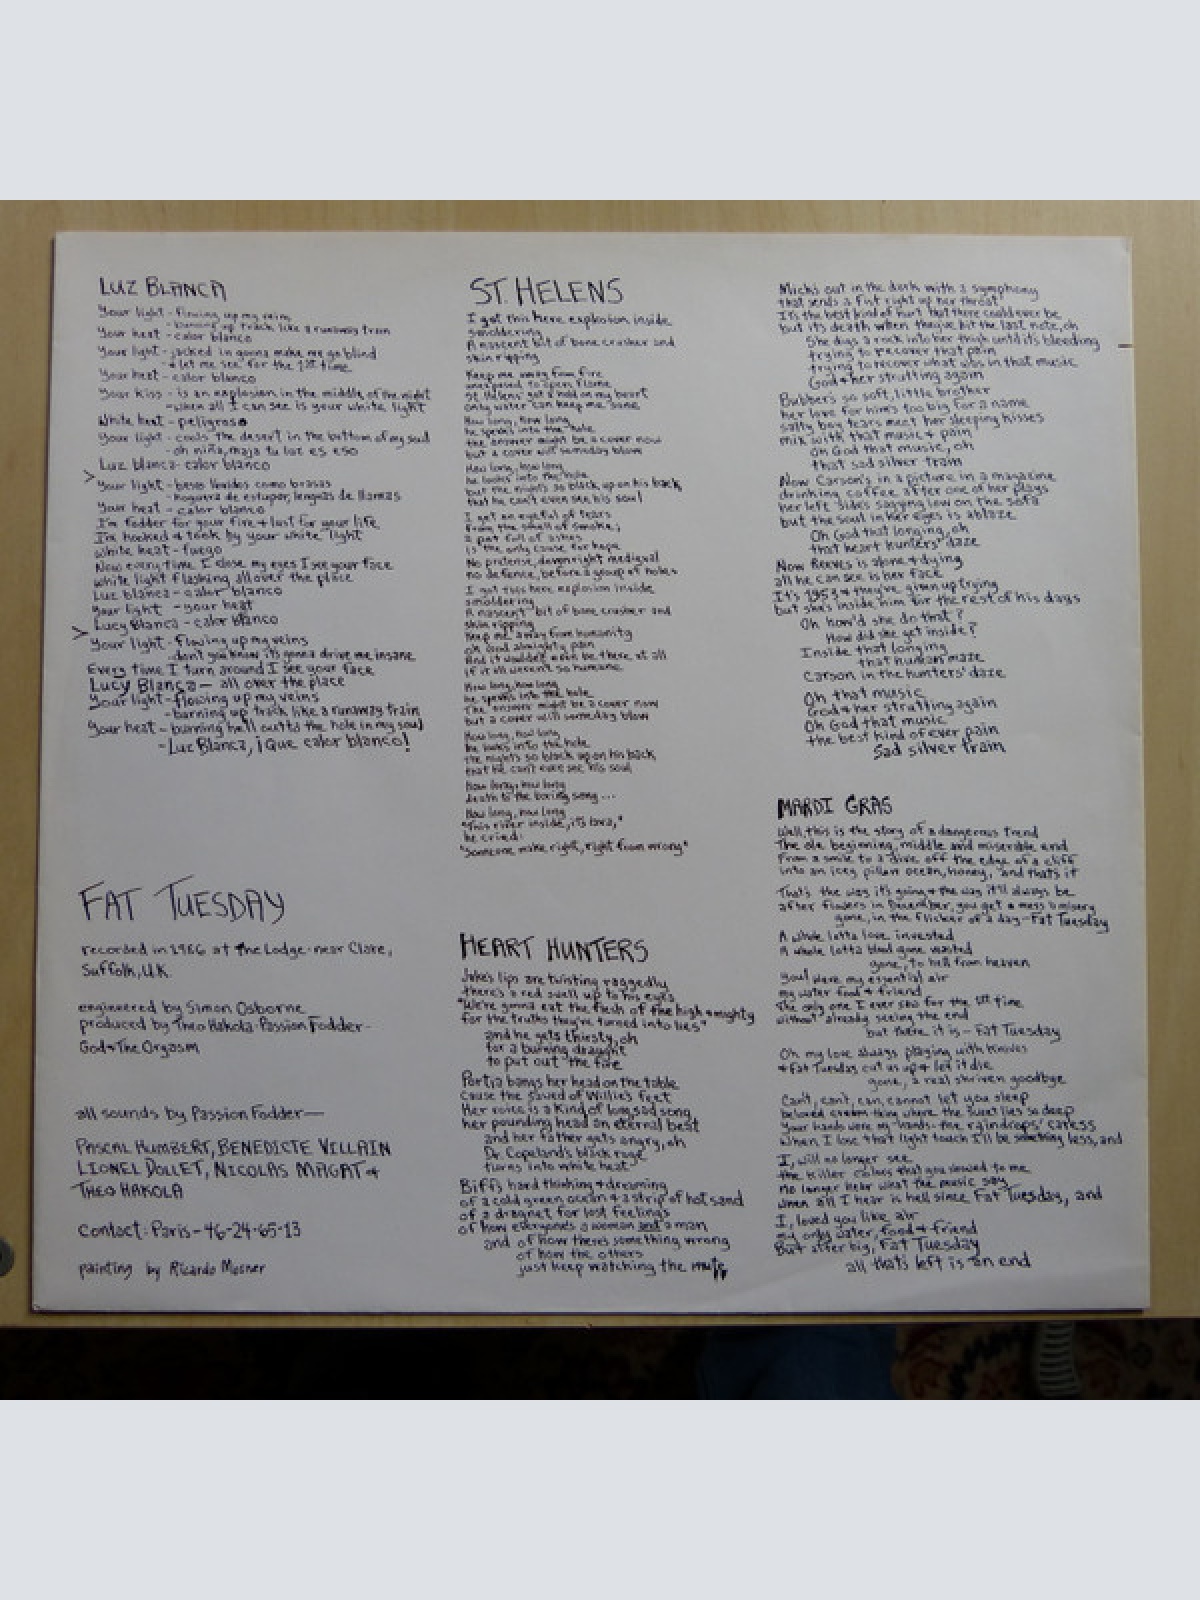 LUZ BLANCA
Your light - flowing up my vein
- burning up track like a runaway train
Your heat - calor blanco
Your light - jacked in gonna make me go blind
+ let me see for the 1st time
Your heat - calor blanco
Your kiss - is an explosion in the middle of the night
- when all I can see is your white light
White heat - peligroso
Your light - cools the desert in the bottom of my soul
- oh niña, maja tu luz es eso
Luz blanca - calor blanco
> Your light - beso lívidos como brasas
- hoguera de estupor, lenguas de llamas
Your heat - calor blanco
I'm fodder for your fire + lust for your life
I'm hooked + took by your white light
white heat - fuego
Now every time I close my eyes I see your face
white light flashing all over the place
Luz blanca - calor blanco
Your light - your heat
Lucy Blanca - calor blanco
> Your light - flowing up my veins
- don't you know it's gonna drive me insane
Every time I turn around I see your face
Lucy Blanca - all over the place
Your light - flowing up my veins
- burning up track like a runaway train
Your heat - burning hell outta the hole in my soul
- Luz Blanca, ¡Que calor blanco!
FAT TUESDAY
recorded in 1986 at the Lodge near Clare,
Suffolk, U.K.
engineered by Simon Osborne
produced by Theo Hakola - Passion Fodder -
God + The Orgasm
all sounds by Passion Fodder —
PASCAL HUMBERT, BENEDICTE VILLAIN
LIONEL DOLLET, NICOLAS MAGAT +
THEO HAKOLA
Contact: Paris - 46-24-65-13
painting by Ricardo Mosner
ST. HELENS
I got this here explosion inside
smoldering
A nascent bit of bone crusher and
skin ripping
Keep me away from fire
unexposed to open flame
St. Helens' got a hold on my heart
only water can keep me sane
How long, how long
he speaks into the hole
the answer might be a cover now
but a cover will someday blow
How long, how long
he looks into the hole
but the night's so black up on his back
that he can't even see his soul
I get an eyeful of tears
from the smell of smoke;
a pot full of ashes
is the only cause for hope
No pretense, downright medieval
no defence, before a group of holes
I got this here explosion inside
smoldering
A nascent bit of bone crusher and
skin ripping
Keep me away from humanity
oh good almighty pain
And it wouldn't even be there at all
if it all weren't so humane
How long, how long
he speaks into the hole
The answer might be a cover now
but a cover will someday blow
How long, how long
he looks into the hole
the night's so black up on his back
that he can't even see his soul
How long, how long
death to the boring song...
How long, how long
"This river inside, it's lava,"
he cried:
"Someone make right, right from wrong"
HEART HUNTERS
Jake's lips are twisting raggedly
there's a red swell up to his eyes
"We're gonna eat the flesh of the high + mighty
for the truths they've turned into lies"
and he gets thirsty, oh
for a burning draught
to put out the fire
Portia bangs her head on the table
Cause the sound of Willie's feet
Her voice is a kind of long sad song
her pounding head an eternal beat
and her father gets angry, oh
Dr. Copeland's black rage
turns into white heat
Biff's hard thinking + dreaming
of a cold green ocean + a strip of hot sand
of a dragnet for lost feelings
of how everyone's a woman and a man
and of how there's something wrong
of how the others
just keep watching the mute
Mick's out in the dark with a symphony
that sends a fist right up her throat
It's the best kind of hurt that there could ever be
but it's death when they've hit the last note, oh
She digs a rock into her thigh until it's bleeding
trying to recover that pain
trying to recover what was in that music
God + her strutting again
Bubber's so soft, little brother
her love for him's too big for a name
salty boy tears meet her sleeping kisses
mix with that music + pain
Oh God that music, oh
that sad silver train
Now Carson's in a picture in a magazine
drinking coffee after one of her plays
her left side's sagging low on the sofa
but the soul in her eyes is ablaze
Oh God that longing, oh
that heart hunters' daze
Now Reeves is alone + dying
all he can see is her face
It's 1953 + they've given up trying
but she's inside him for the rest of his days
Oh how'd she do that?
How did she get inside?
Inside that longing
that human maze
Carson in the hunters' daze
Oh that music
God + her strutting again
Oh God that music
the best kind of ever pain
Sad silver train
MARDI GRAS
Well, this is the story of a dangerous trend
The ole beginning, middle and miserable end
From a smile to a dive off the edge of a cliff
into an icey pillow ocean, honey, and that's it
That's the way it's going + the way it'll always be
after flowers in December, you get a mess o misery
gone, in the flicker of a day - Fat Tuesday
A whole lotta love invested
A whole lotta blood gone wasted
gone, to hell from heaven
You! were my essential air
my water food + friend
The only one I ever saw for the 1st time
without already seeing the end
but there it is - Fat Tuesday
Oh my love always playing with knives
+ Fat Tuesday cut us up + let it die
gone, a real shriven goodbye
Can't, can't, can, cannot let you sleep
beloved cream-thing where the sweet lies so deep
Your hands were my - hands - the raindrops' caress
When I lose that light touch I'll be something less, and
I, will no longer see
the killer colors that you showed to me
No longer hear what the music say
when all I hear is hell since Fat Tuesday, and
I, loved you like air
my only water, food + friend
But after big, Fat Tuesday
all that's left is an end